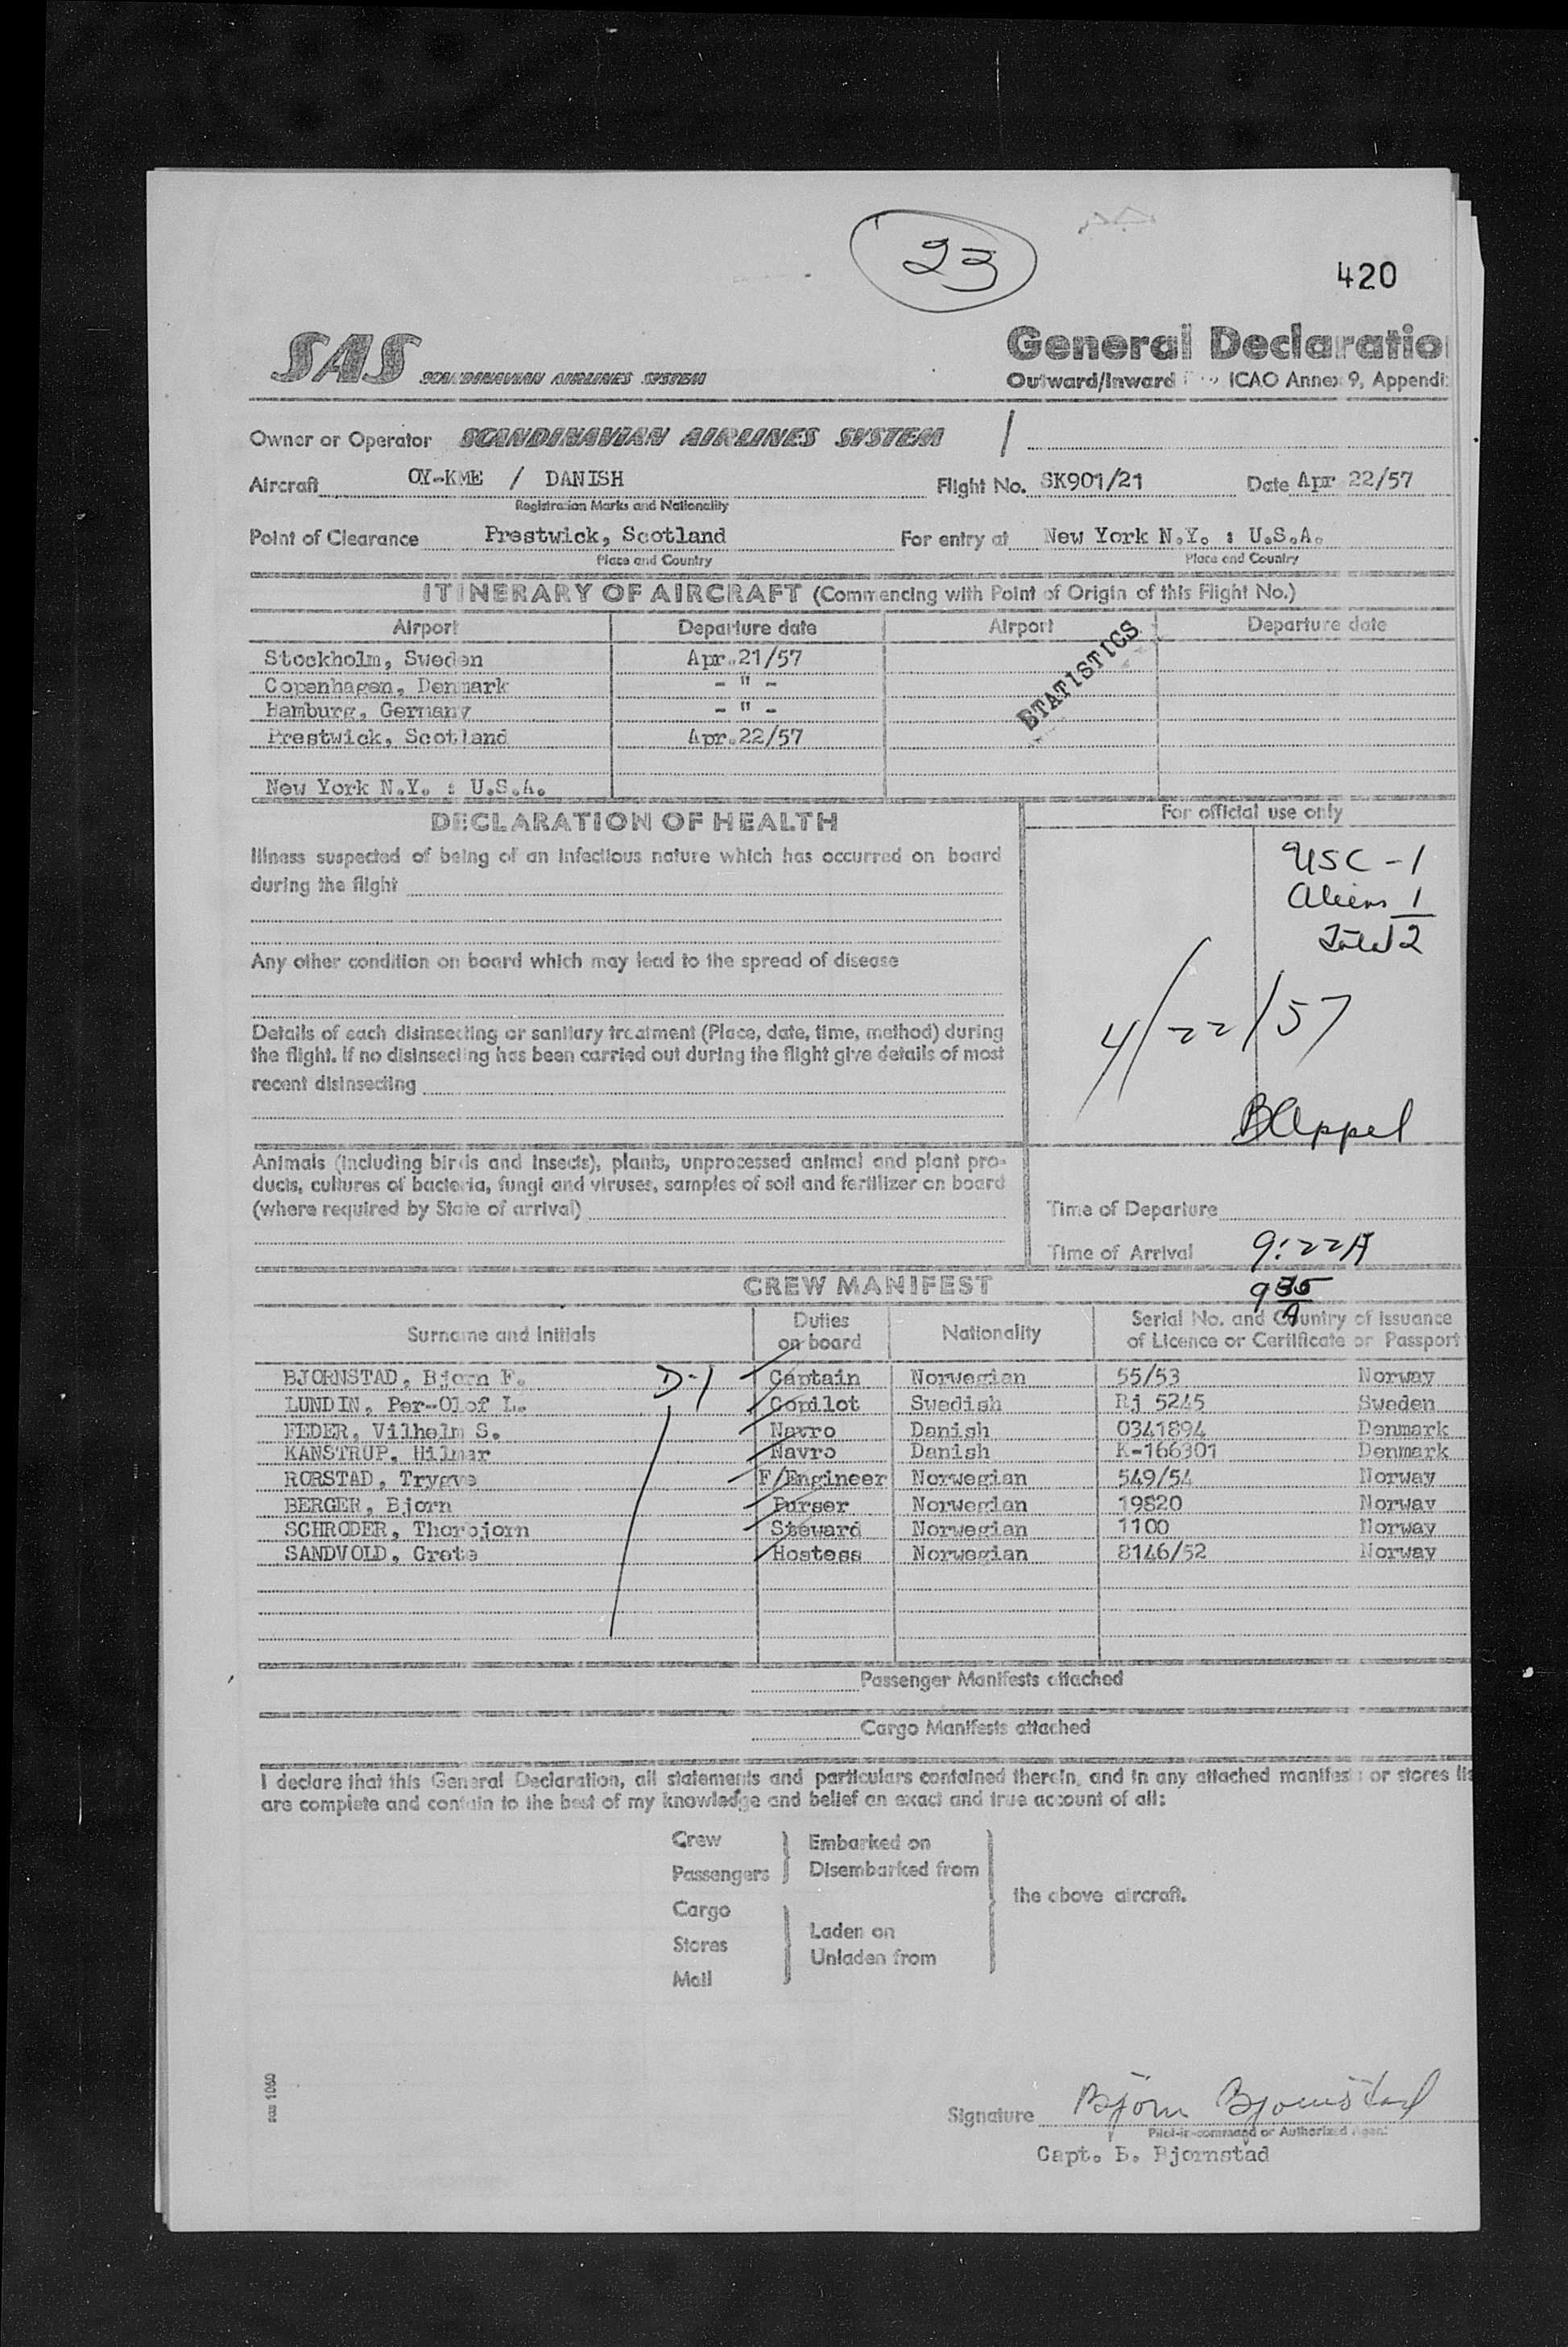 23
420
SAS SCANDINAVIAN AIRLINES SYSTEM
General Declaratio
Outward/Inward ICAO Annex 9, Appendi
Owner or Operator SCANDINAVIAN AIRLINES SYSTEM
Aircraft OY-KME / DANISH Flight No. SK901/21 Date Apr 22/57
Registration Marks and Nationality
Point of Clearance Prestwick, Scotland For entry at New York N.Y. : U.S.A.
Place and Country Place and Country
ITINERARY OF AIRCRAFT (Commencing with Point of Origin of this Flight No.)
Airport Departure date Airport Departure date
Stockholm, Sweden Apr.21/57
Copenhagen, Denmark - " -
Hamburg, Germany - " -
Prestwick, Scotland Apr.22/57
New York N.Y. : U.S.A.
STATISTICS
DECLARATION OF HEALTH
Illness suspected of being of an infectious nature which has occurred on board
during the flight
Any other condition on board which may lead to the spread of disease
Details of each disinsecting or sanitary treatment (Place, date, time, method) during
the flight. If no disinsecting has been carried out during the flight give details of most
recent disinsecting
Animals (including birds and insects), plants, unprocessed animal and plant pro-
ducts, cultures of bacteria, fungi and viruses, samples of soil and fertilizer on board
(where required by State of arrival)
For official use only
USC - 1
Aliens 1
Total 2
4/22/57
B Appel
Time of Departure
Time of Arrival 9:22A
9 35 A
CREW MANIFEST
Surname and Initials Duties on board Nationality Serial No. and Country of Issuance of Licence or Certificate or Passport
D-1
BJORNSTAD, Bjorn F. Captain Norwegian 55/53 Norway
LUNDIN, Per-Olof L. Copilot Swedish Rj 5245 Sweden
FEDER, Vilhelm S. Navro Danish 0341894 Denmark
KANSTRUP, Hilmar Navro Danish K-166301 Denmark
RORSTAD, Trygve F/Engineer Norwegian 549/54 Norway
BERGER, Bjorn Purser Norwegian 19820 Norway
SCHRODER, Thorbjorn Steward Norwegian 1100 Norway
SANDVOLD, Grete Hostess Norwegian 8146/52 Norway
Passenger Manifests attached
Cargo Manifests attached
I declare that this General Declaration, all statements and particulars contained therein, and in any attached manifests or stores lis
are complete and contain to the best of my knowledge and belief an exact and true account of all:
Crew
Passengers
Embarked on
Disembarked from
Cargo
Stores
Mail
Laden on
Unladen from
the above aircraft.
sas 1060
Signature Björn Bjornstad
Pilot-in-command or Authorized Agent
Capt. B. Bjornstad